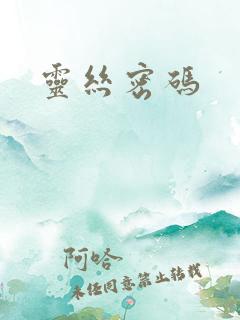 靈絲密碼
阿哈
未經同意禁止轉載